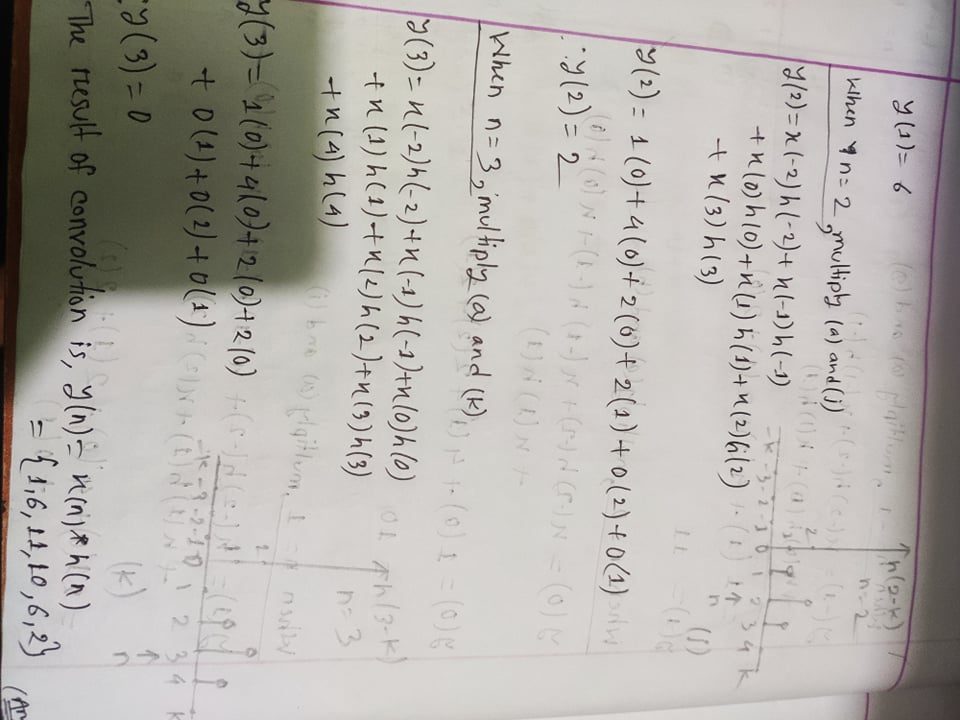 y(1) = 6
When n = 2, multiply (a) and (j)
y(2) = x(-2) h(-2) + x(-1) h(-1)
+ x(0) h(0) + x(1) h(1) + x(2) h(2)
+ x(3) h(3)
h(2-k)
n = 2
2
1
-k -3 -2 -1 0 1 2 3 4 k
n
(j)
y(2) = 1(0) + 4(0) + 2(0) + 2(1) + 0(2) + 0(1)
∴ y(2) = 2
When n = 3, multiply (a) and (k)
y(3) = x(-2) h(-2) + x(-1) h(-1) + x(0) h(0)
+ x(1) h(1) + x(2) h(2) + x(3) h(3)
+ x(4) h(4)
h(3-k)
n = 3
2
1
-k -3 -2 -1 0 1 2 3 4 k
n
(k)
y(3) = 1(0) + 4(0) + 2(0) + 2(0)
+ 0(1) + 0(2) + 0(1)
∴ y(3) = 0
The result of convolution is, y(n) = x(n) * h(n)
= {1, 6, 11, 10, 6, 2}